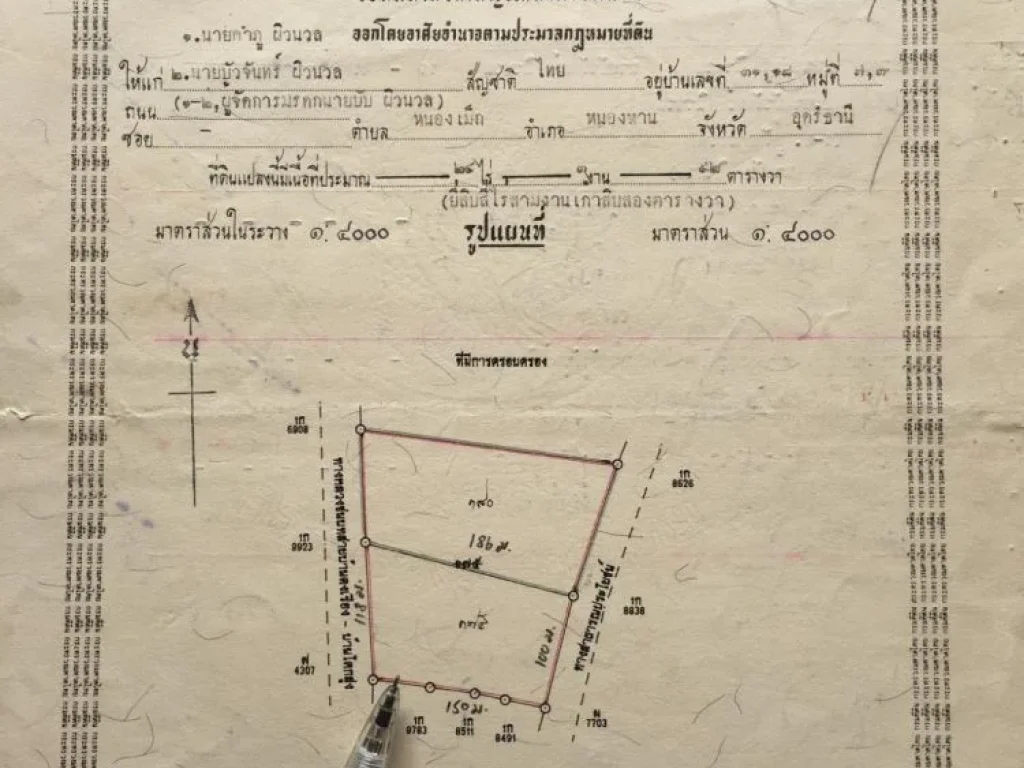 ๑.นายคำภู ผิวนวล ออกโดยอาศัยอำนาจตามประมวลกฎหมายที่ดิน
ให้แก่ ๒.นายบัวจันทร์ ผิวนวล - สัญชาติ ไทย อยู่บ้านเลขที่ ๓๑,๑๘ หมู่ที่ ๗,๓
ถนน (๑-๒,ผู้จัดการมรดกนายบับ ผิวนวล)
ซอย - ตำบล หนองเม็ก อำเภอ หนองหาน จังหวัด อุดรธานี
ที่ดินแปลงนี้มีเนื้อที่ประมาณ ๒๔ ไร่ ๓ งาน ๙๒ ตารางวา
(ยี่สิบสี่ไร่สามงานเก้าสิบสองตารางวา)
มาตราส่วนในระวาง ๑:๔๐๐๐ รูปแผนที่ มาตราส่วน ๑:๔๐๐๐
น
ที่มีการครอบครอง
1ก
6908
1ก
8626
๑๗๐
186 ม.
๑๗๕
1ก
9923
1ก
8838
118 ม.
๑๓๕
100 ม.
ทางสาธารณประโยชน์
ฬ
4307
150 ม.
1ก
9783
1ก
8511
1ก
8491
N
7703